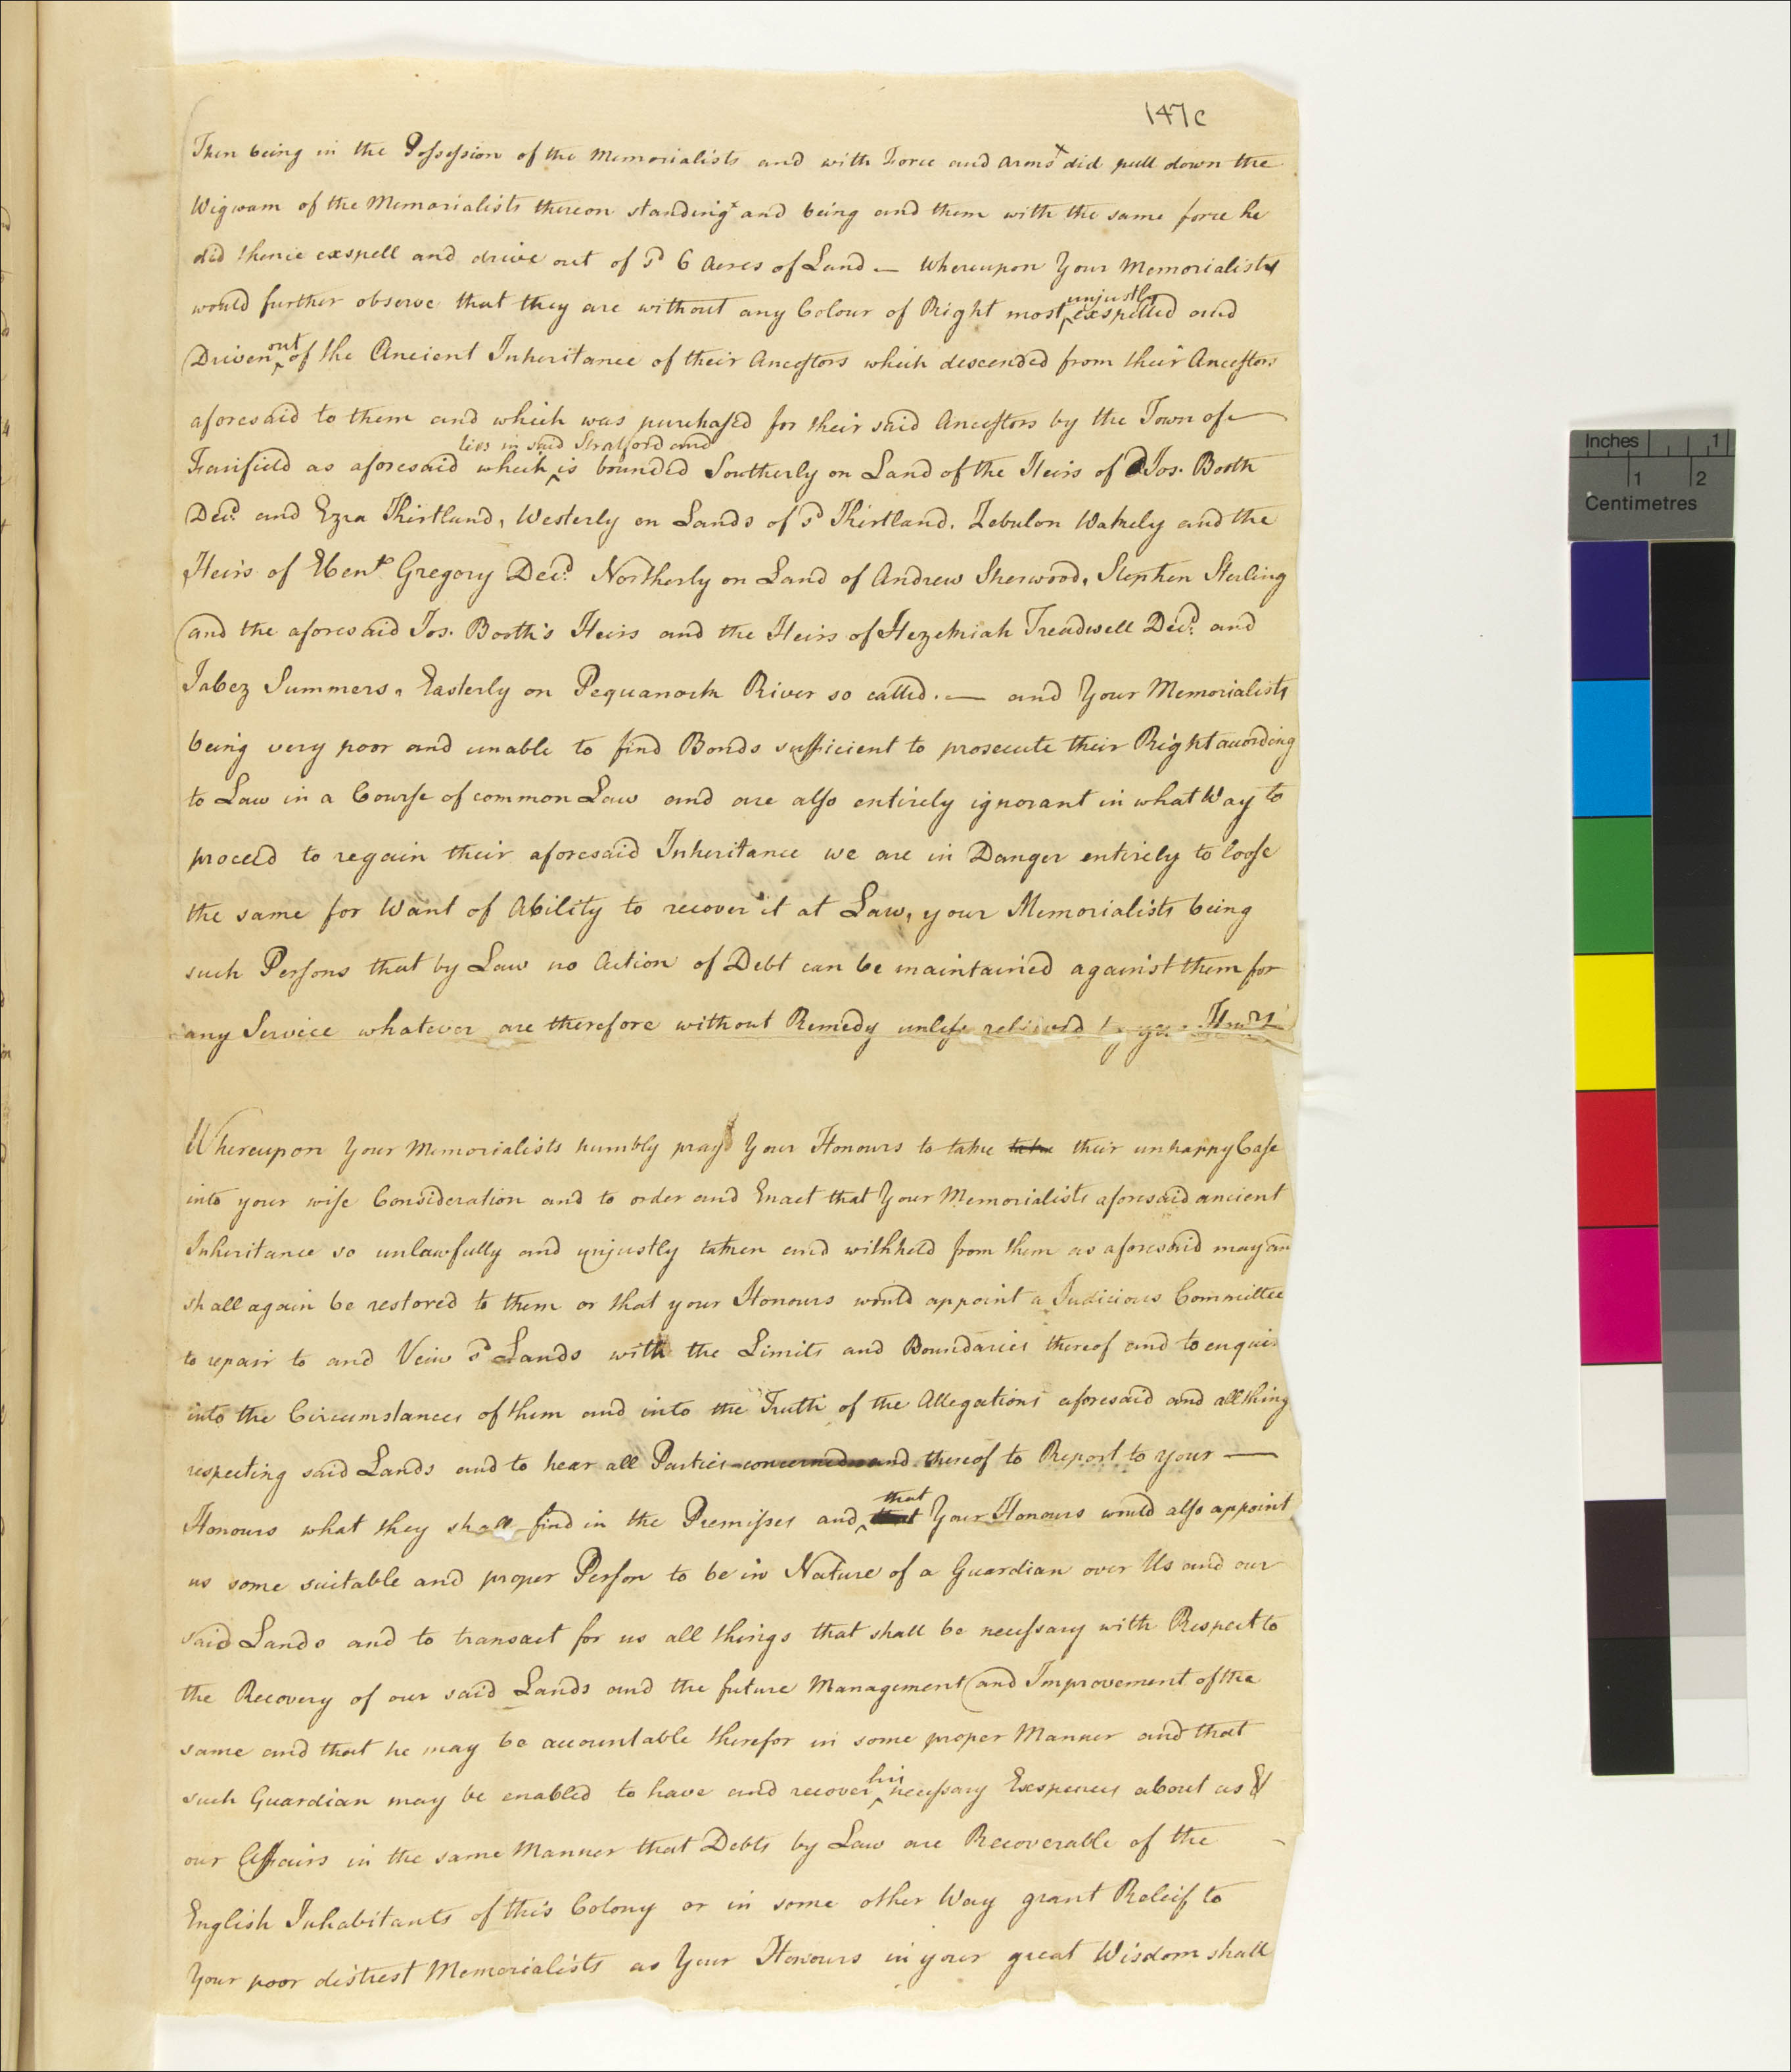 147c
Then being in the Possession of the Memorialists and with Force and Arms did pull down the
Wigwam of the Memorialists thereon standing and being and them with the same force he
did thence exspell and drive out of sd 6 Acres of Land — Whereupon Your Memorialists
would further observe that they are without any Colour of Right most unjustly exspelled and
Driven out of the Ancient Inheritance of their Ancestors which descended from their Ancestors
aforesaid to them and which was purchased for their said Ancestors by the Town of
Fairfield as aforesaid which lies in said Stratford and is bounded Southerly on Land of the Heirs of Jos. Booth
Decd and Ezra Kirtland, Westerly on Lands of sd Kirtland, Zebulon Wakely and the
Heirs of Ebenr Gregory Decd Northerly on Land of Andrew Sherwood, Stephen Sterling
and the aforesaid Jos. Booth's Heirs and the Heirs of Hezekiah Treadwell Decd and
Jabez Summers, Easterly on Pequanock River so called. — and Your Memorialists
being very poor and unable to find Bonds sufficient to prosecute their Right according
to Law in a Course of common Law and are also entirely ignorant in what Way to
proceed to regain their aforesaid Inheritance we are in Danger entirely to loose
the same for Want of Ability to recover it at Law, your Memorialists being
such Persons that by Law no Action of Debt can be maintained against them for
any Service whatever are therefore without Remedy unless relieved by your
Whereupon Your Memorialists humbly pray Your Honours to take take their unhappy Case
into your wise Consideration and to order and Enact that Your Memorialists aforesaid ancient
Inheritance so unlawfully and unjustly taken and withheld from them as aforesaid may an
shall again be restored to them or that your Honours would appoint a Judicious Committee
to repair to and Veiw sd Lands with the Limits and Boundaries thereof and to enqui
into the Circumstances of them and into the Truth of the Allegations aforesaid and all thing
respecting said Lands and to hear all Parties concerned and thereof to Report to your —
Honours what they shall find in the Premisses and that that Your Honours would also appoint
us some suitable and proper Person to be in Nature of a Guardian over Us and our
said Lands and to transact for us all things that shall be necessary with Respect to
the Recovery of our said Lands and the future Management and Improvement of the
same and that he may be accountable therefor in some proper Manner and that
such Guardian may be enabled to have and recover his necessary Exspences about us &
our Affairs in the same Manner that Debts by Law are Recoverable of the
English Inhabitants of this Colony or in some other Way grant Releif to
Your poor distrest Memorialists as Your Honours in your great Wisdom shall
Inches 1
1 2
Centimetres